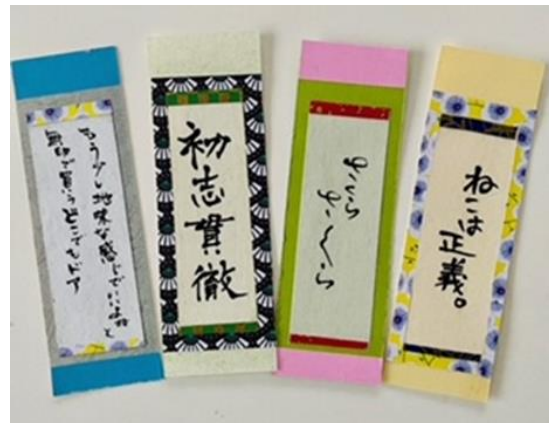 もう少し地味な感じでいいよねと
無印で買うどこでもドア
初志貫徹
さくら
さくら
ねこは
正義。